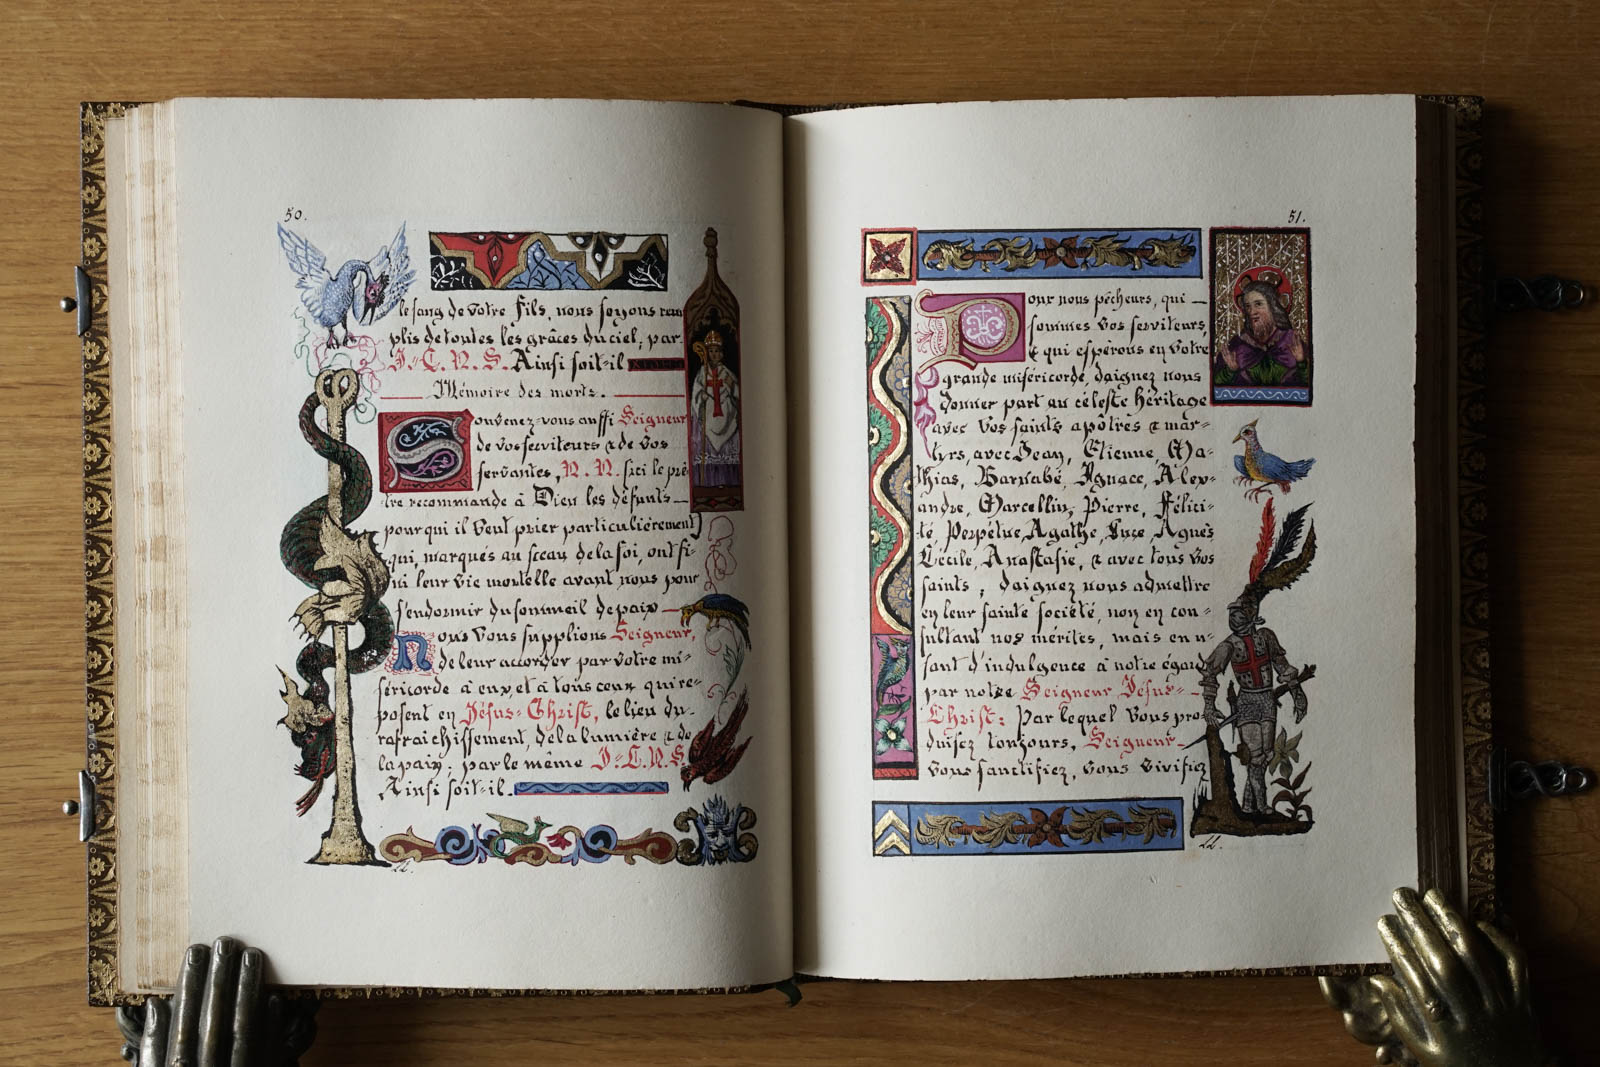 50.
le sang de votre Fils, nous soyons rem
plis de toutes les grâces du ciel; par
J=C. N. S. Ainsi soit=il
Mémoire des morts.
Souvenez-vous aussi Seigneur
de vos serviteurs & de vos
servantes, N. N. ici le prê=
tre recommande à Dieu les défunts
pour qui il veut prier particulièrement)
qui, marqués au sceau de la foi, ont fi=
ni leur vie mortelle avant nous pour
s'endormir du sommeil de paix
Nous vous supplions Seigneur,
de leur accorder par votre mi=
séricorde à eux, et à tous ceux qui re=
posent en Jésus=Christ, le lieu du
rafraichissement, de la lumière & de
la paix; par le même J=C. N. S.
Ainsi soit=il.
LL.
51.
Pour nous pécheurs, qui
sommes vos serviteurs,
& qui espérons en votre
grande miséricorde, daignez nous
donner part au céleste héritage
avec vos saints apôtres & mar=
tyrs, avec Jean, Etienne, Ma=
thias, Barnabé, Ignace, Alex=
andre, Marcellin, Pierre, Félici=
té, Perpétue, Agathe, Luce, Agnès
Cécile, Anastasie, & avec tous vos
saints; daignez nous admettre
en leur sainte société, non en con=
sultant nos mérites, mais en u=
sant d'indulgence à notre égard
par notre Seigneur Jésus=
Christ: Par lequel vous pro=
duisez toujours, Seigneur
vous sanctifiez, vous vivifiez
LL.